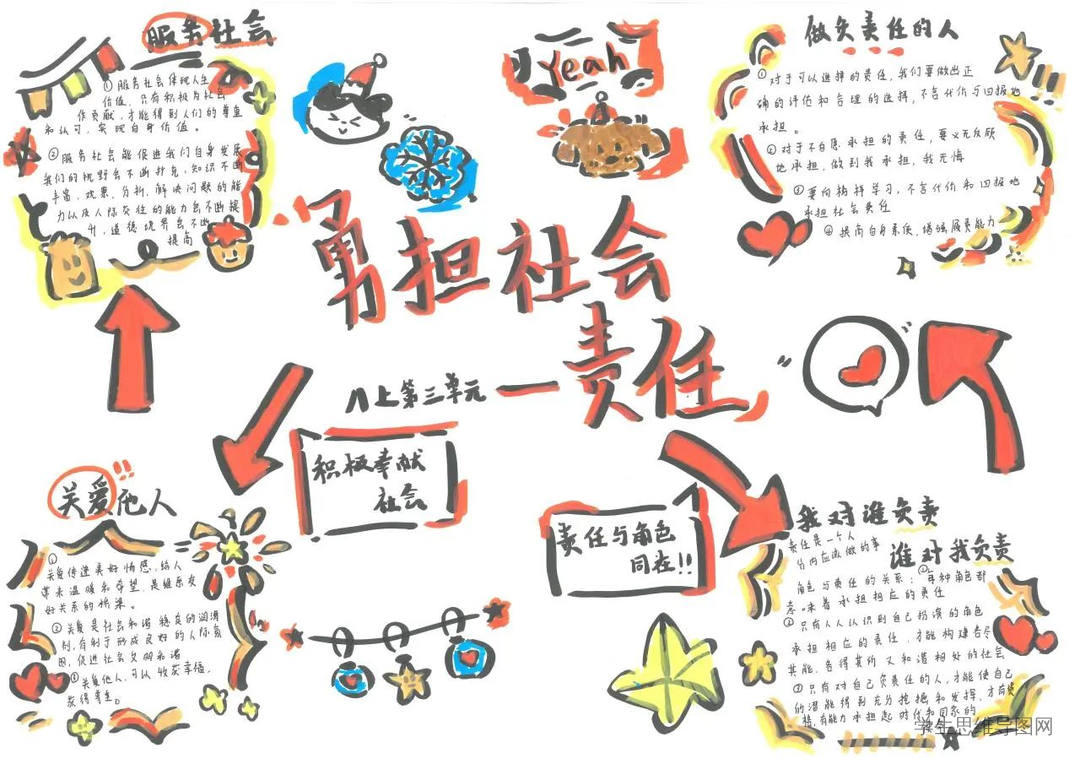 服务社会
①服务社会体现人生
价值,只有积极为社会
作贡献,才能得到人们的尊重
和认可,实现自身价值。
②服务社会能促进我们自身发展
我们的视野会不断扩充,知识不断
丰富,观察、分析、解决问题的能
力以及人际交往的能力会不断提
升,道德境界会不断
提高
Yeah
做负责任的人
①对于可以选择的责任,我们要做出正
确的评估和合理的选择,不言代价与回报地
承担。
②对于不自愿承担的责任,要义无反顾
地承担,做到我承担,我无悔
③要向榜样学习,不言代价和回报地
承担社会责任
④提高自身素质,增强服务能力
勇担社会
—责任
八上第三单元
积极奉献
社会
责任与角色
同在!!
关爱他人
①
关爱传递美好情感,给人
带来温暖和希望,是维系友
好关系的桥梁。
②关爱是社会和谐稳定的润滑
剂,有利于形成良好的人际氛
围,促进社会文明和谐
③关爱他人,可以收获幸福,
获得尊重。
我对谁负责
谁对我负责
责任是一个人
分内应该做的事
角色与责任的关系:①每种角色都
意味着承担相应的责任
②只有人人认识到自己扮演的角色
承担相应的责任,才能构建各尽
其能、各得其所又和谐相处的社会
③只有对自己负责任的人,才能使自己
的潜能得到充分挖掘和发挥,才有资
格、有能力承担起时代和国家的
学生思维导图网